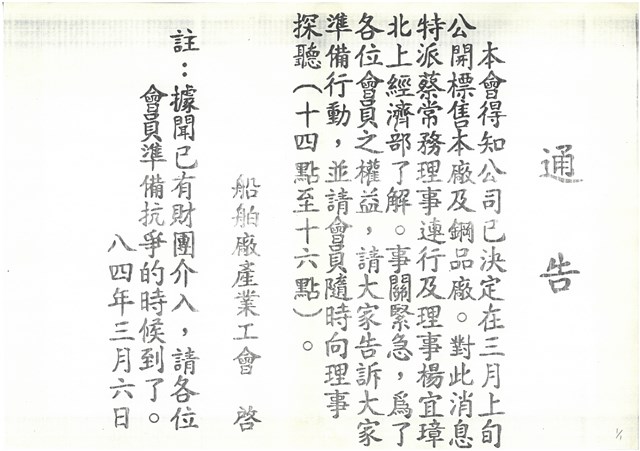 通告
本會得知公司已決定在三月上旬
公開標售本廠及鋼品廠。對此消息
特派蔡常務理事連行及理事楊宜璋
北上經濟部了解。事關緊急，爲了
各位會員之權益，請大家告訴大家
準備行動，並請會員隨時向理事
探聽（十四點至十六點）。
船舶廠產業工會 啓
註：據聞已有財團介入，請各位
會員準備抗爭的時候到了。
八四年三月六日
1/1